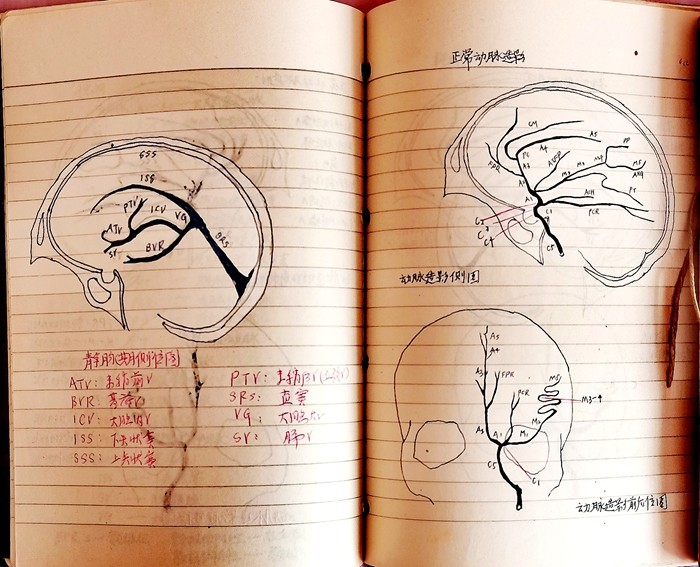 SSS
ISS
PTV
ICV
VG
ATV
SV
BVR
BRS
静脉期侧位图
ATV: 前V
BVR: 基底V
ICV: 大脑内V
ISS: 下矢状窦
SSS: 上矢状窦
PTV:
SRS: 直窦
VG: 大脑大V
SV: V
正常动脉造影
CM
A5
PC
A4
A3
FPR
M3
PP
M5
ANG
PT
PCR
C1
C2
C3
C4
C5
动脉造影侧图
A5
A4
A3
FPR
PCR
M5
M3-4
M2
A2
A1
M1
C5
C1
动脉造影前后位图